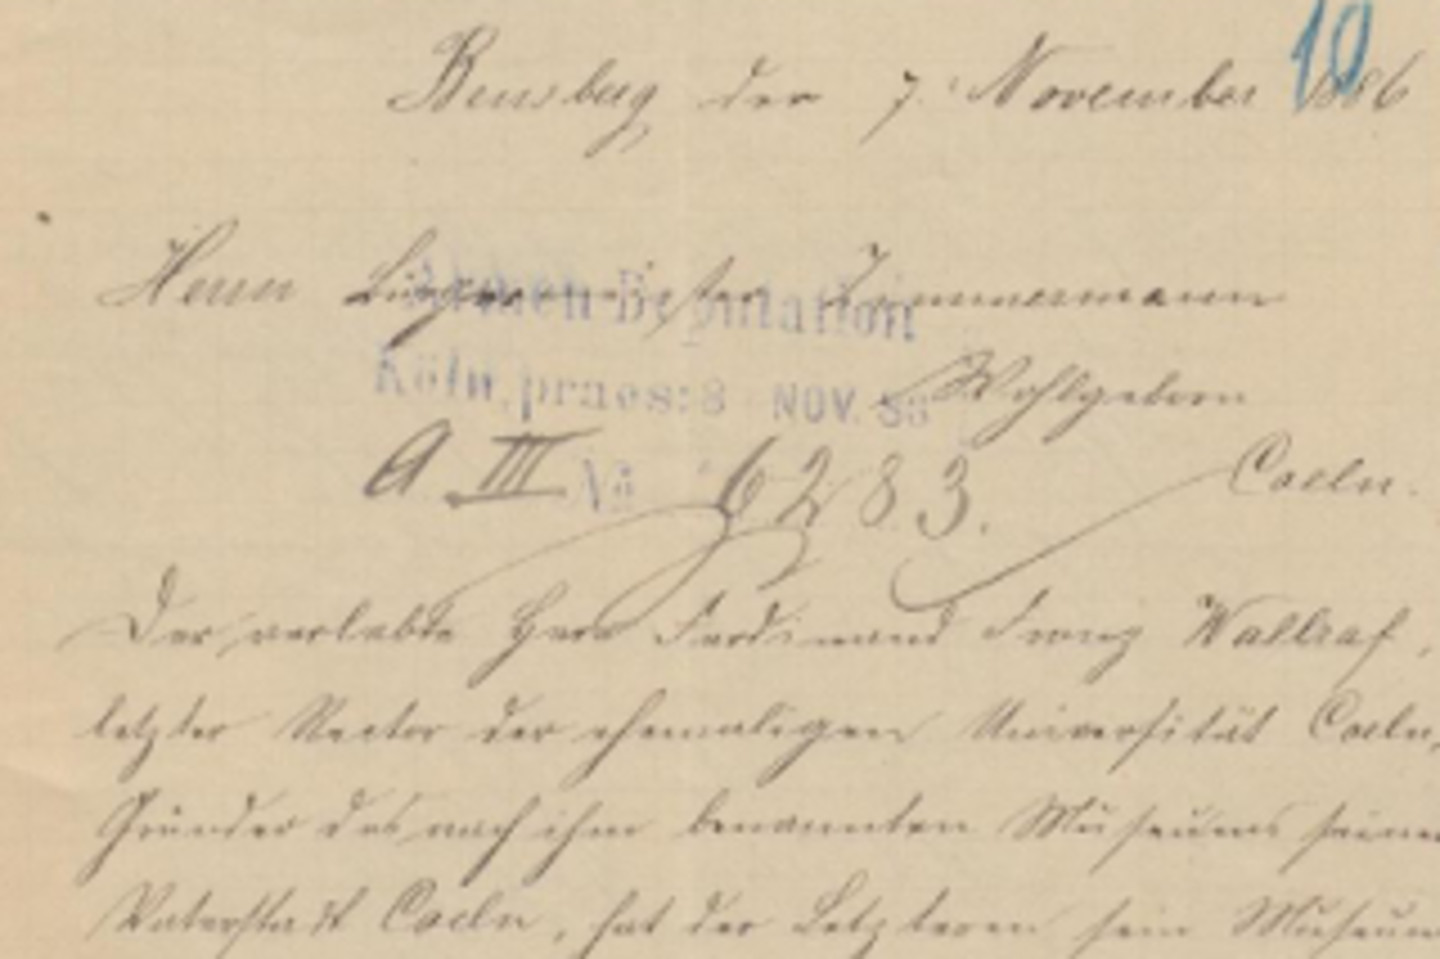 10
Bensberg den 7. November 1886
Herrn Bürgermeister Zimmermann
Armen-Deputation
Wohlgeborn
Köln, praes: 8 NOV. 86
A III No 6283.
Coeln.
Der verlebte Herr Ferdinand Franz Wallraf,
letzter Rector der ehemaligen Universität Coeln,
Gründer des nach ihm benannten Museums seiner
Vaterstadt Coeln, hat der Letzteren sein Museum